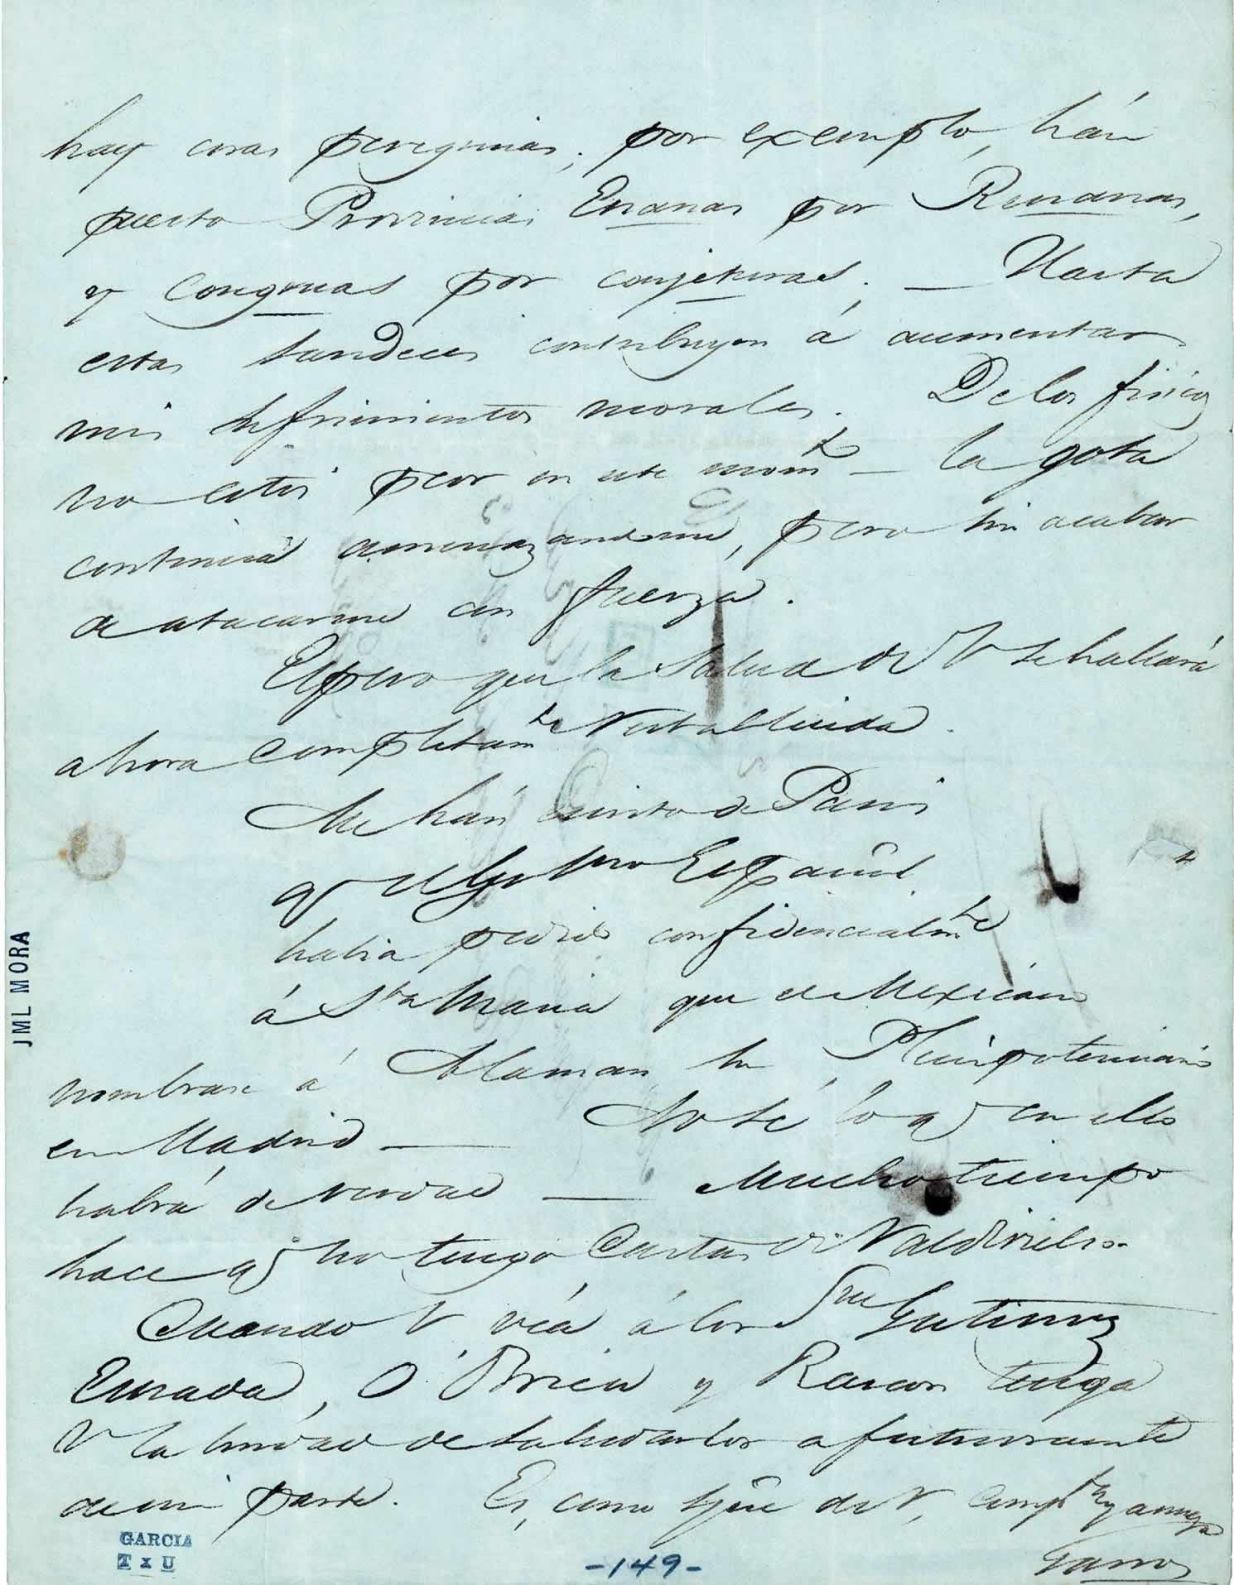 hay cosas peregrinas; por exemplo, hán
puesto Provincias Enanas por Renanas,
y congruas por conjeturas. — Hasta
estas sandeces contribuyen á aumentar
mis sufrimientos morales. De los físicos
no estoi peor en este momto — la gota
continúa amenazandome, pero sin acabar
de atacarme con fuerza.
Espero que la salud de V se hallará
ahora completamte restablecida.
Me hán escrito de Paris
q el Gobierno Español
habia pedido confidencialmte
á Sta Maria que de Mexico
nombrase á Alaman su Plenipotenciario
en Madrid — No se lo q en ello
habrá de verdad — Mucho tiempo
hace q no tengo cartas de Valdivielso.
Cuando V véa á los Sres Gutierrez
Estrada, O'Brien y Rascon tenga
V la bondad de saludarlos afectuosamente
de mi parte. Es, como siempre de V, comp y amigo
Garro
JML MORA
GARCIA
-149-